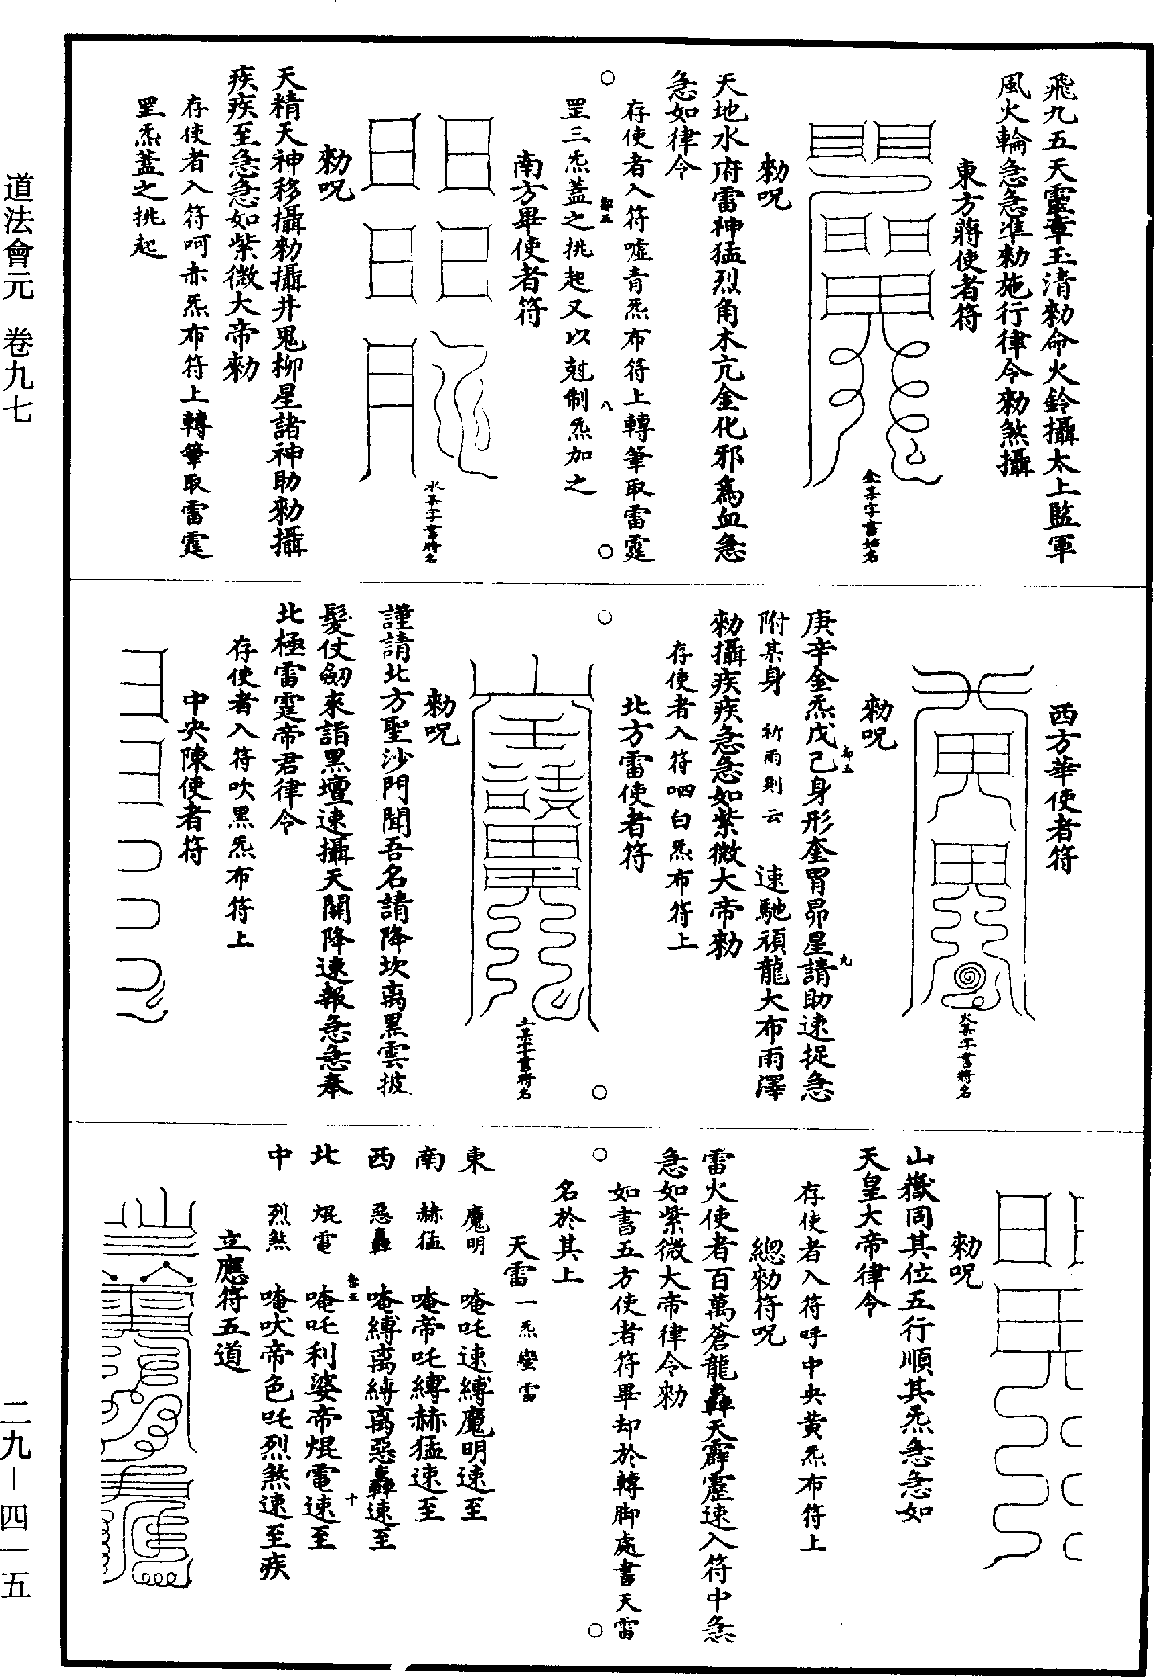 飛九五天靈章玉清勑命火鈴攝太上監軍
風火輪急急準勑施行律令勑煞攝
東方蔣使者符
勑呪
天地水府雷神猛烈角木亢金化邪爲血急
急如律令
存使者入符噓青炁布符上轉筆取雷霆
罡三炁蓋之挑起又以尅制炁加之
南方畢使者符
勑呪
天精天神移攝勑攝井鬼柳星諸神助勑攝
疾疾至急急如紫微大帝勑
存使者入符呵赤炁布符上轉筆取雷霆
罡炁蓋之挑起
西方華使者符
勑呪
庚辛金炁戊己身形奎胃昴星請助速捉急
附某身 祈雨則云 速馳頑龍大布雨澤
勑攝疾疾急急如紫微大帝勑
存使者入符呬白炁布符上
北方雷使者符
勑呪
謹請北方聖沙門聞吾名請降坎离黑雲披
髮仗劒來詣黑壇速攝天關降速報急急奉
北極雷霆帝君律令
存使者入符吹黑炁布符上
中央陳使者符
勑呪
山嶽同其位五行順其炁急急如
天皇大帝律令
存使者入符呼中央黄炁布符上
總勑符呪
雷火使者百萬蒼龍轟天霹靂速入符中急
急如紫微大帝律令勑
如書五方使者符畢却於轉脚處書天雷
名於其上
天雷一炁蠻雷
東 魔明 唵吒速縛魔明速至
南 赫猛 唵帝吒縛赫猛速至
西 惡轟 唵縛离縛离惡轟速至
北 焜電 唵吒利婆帝焜電速至
中 烈煞 唵吠帝色吒烈煞速至疾
立應符五道
道法會元 卷九七
二九－四一五